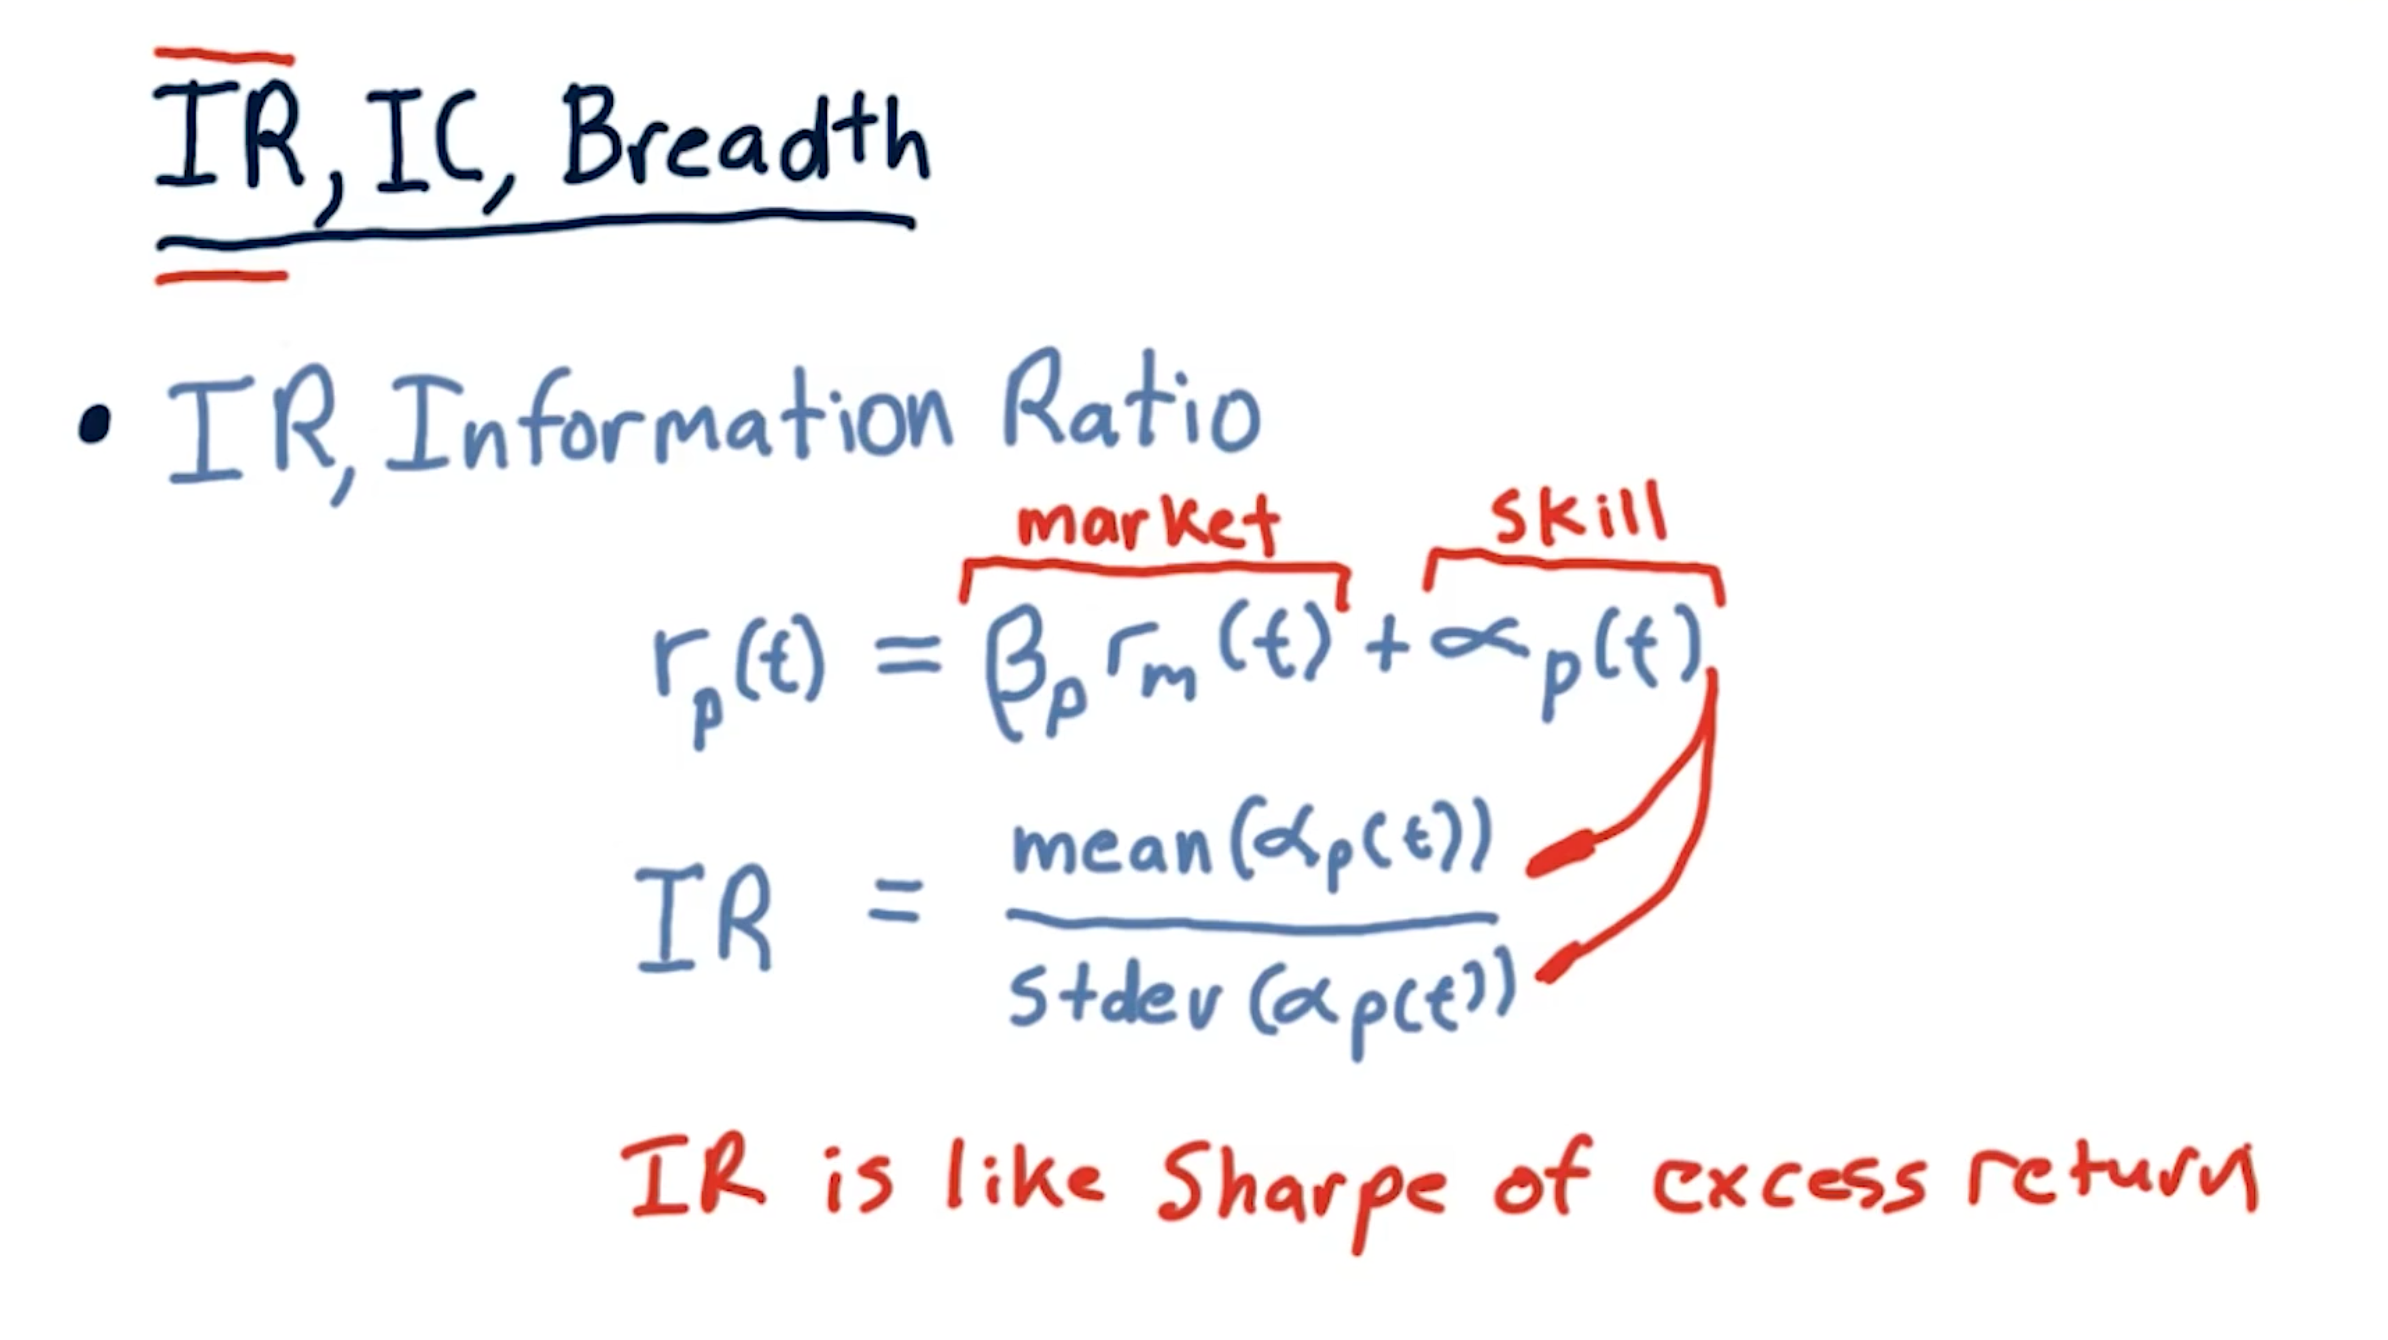 IR, IC, Breadth
• IR, Information Ratio
market skill
rp(t) = βp rm(t) + αp(t)
mean(αp(t))
IR =
stdev(αp(t))
IR is like Sharpe of excess return